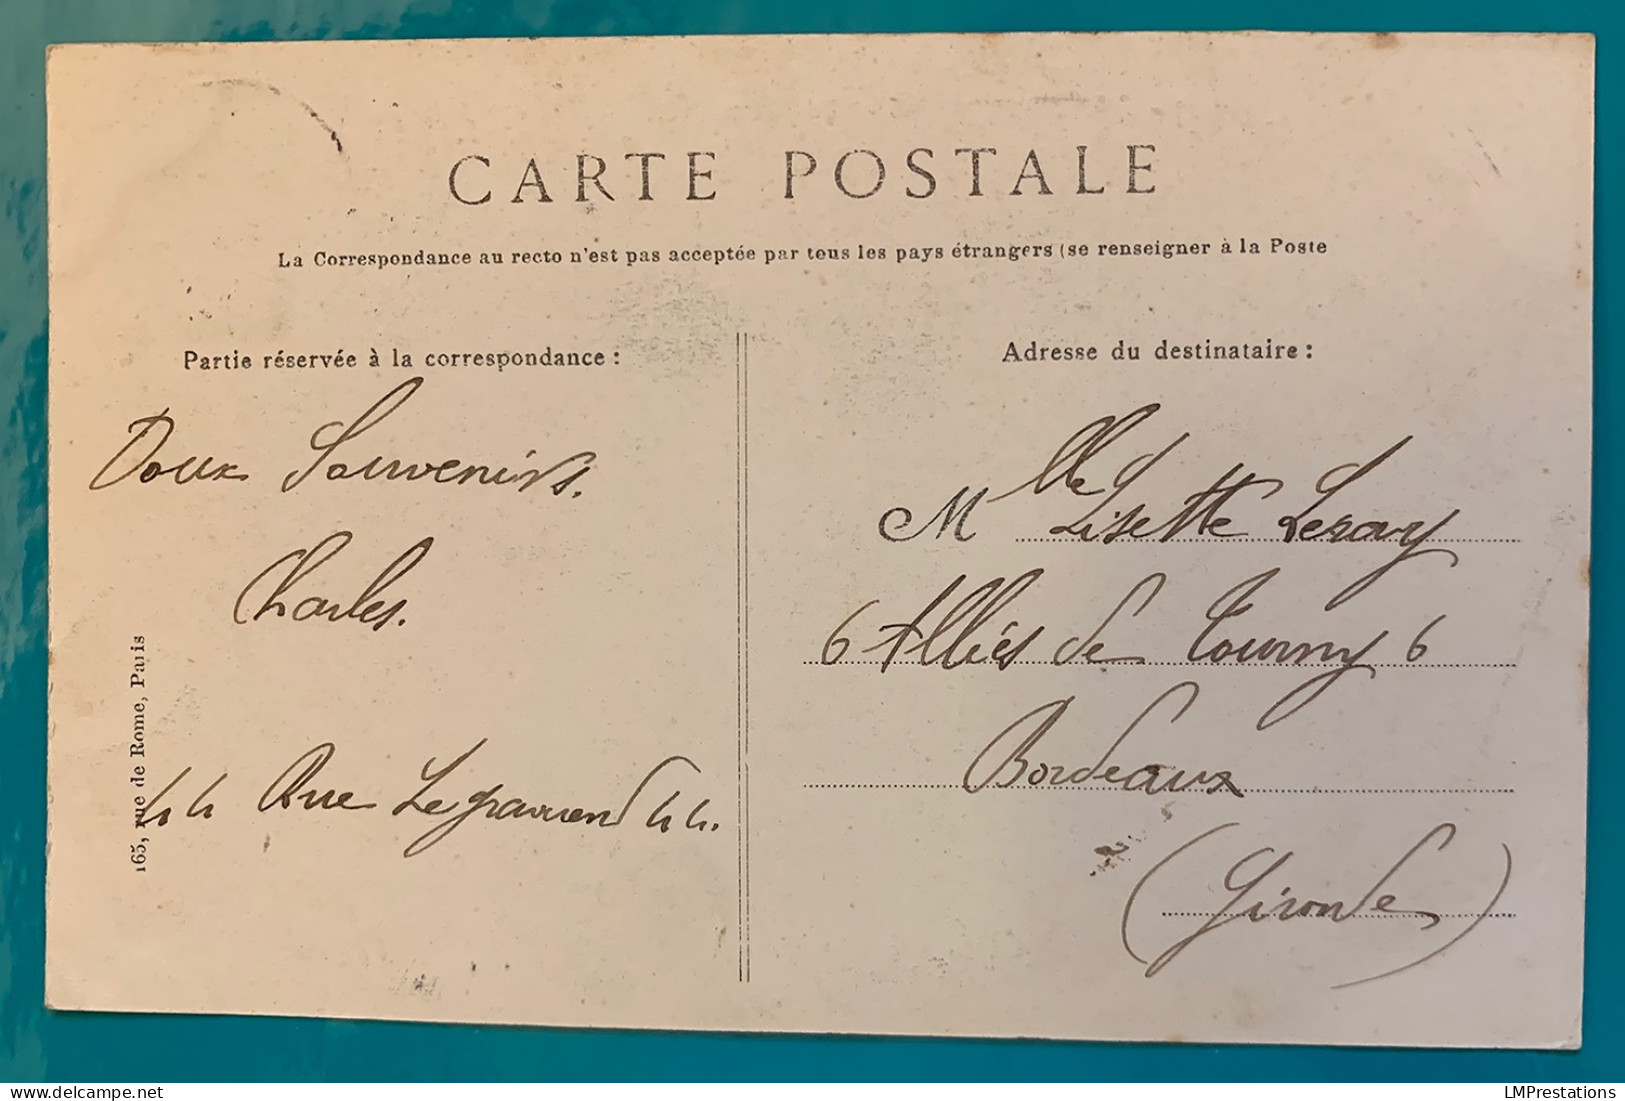 CARTE POSTALE
La Correspondance au recto n'est pas acceptée par tous les pays étrangers (se renseigner à la Poste
Partie réservée à la correspondance :
Doux Souvenirs.
Charles.
44 Rue Legraverend 44.
165, rue de Rome, Paris
Adresse du destinataire :
Mlle Lisette Leray
6 Alliés de Tourny 6
Bordeaux
(Gironde)
delcampe.net
LMPrestations